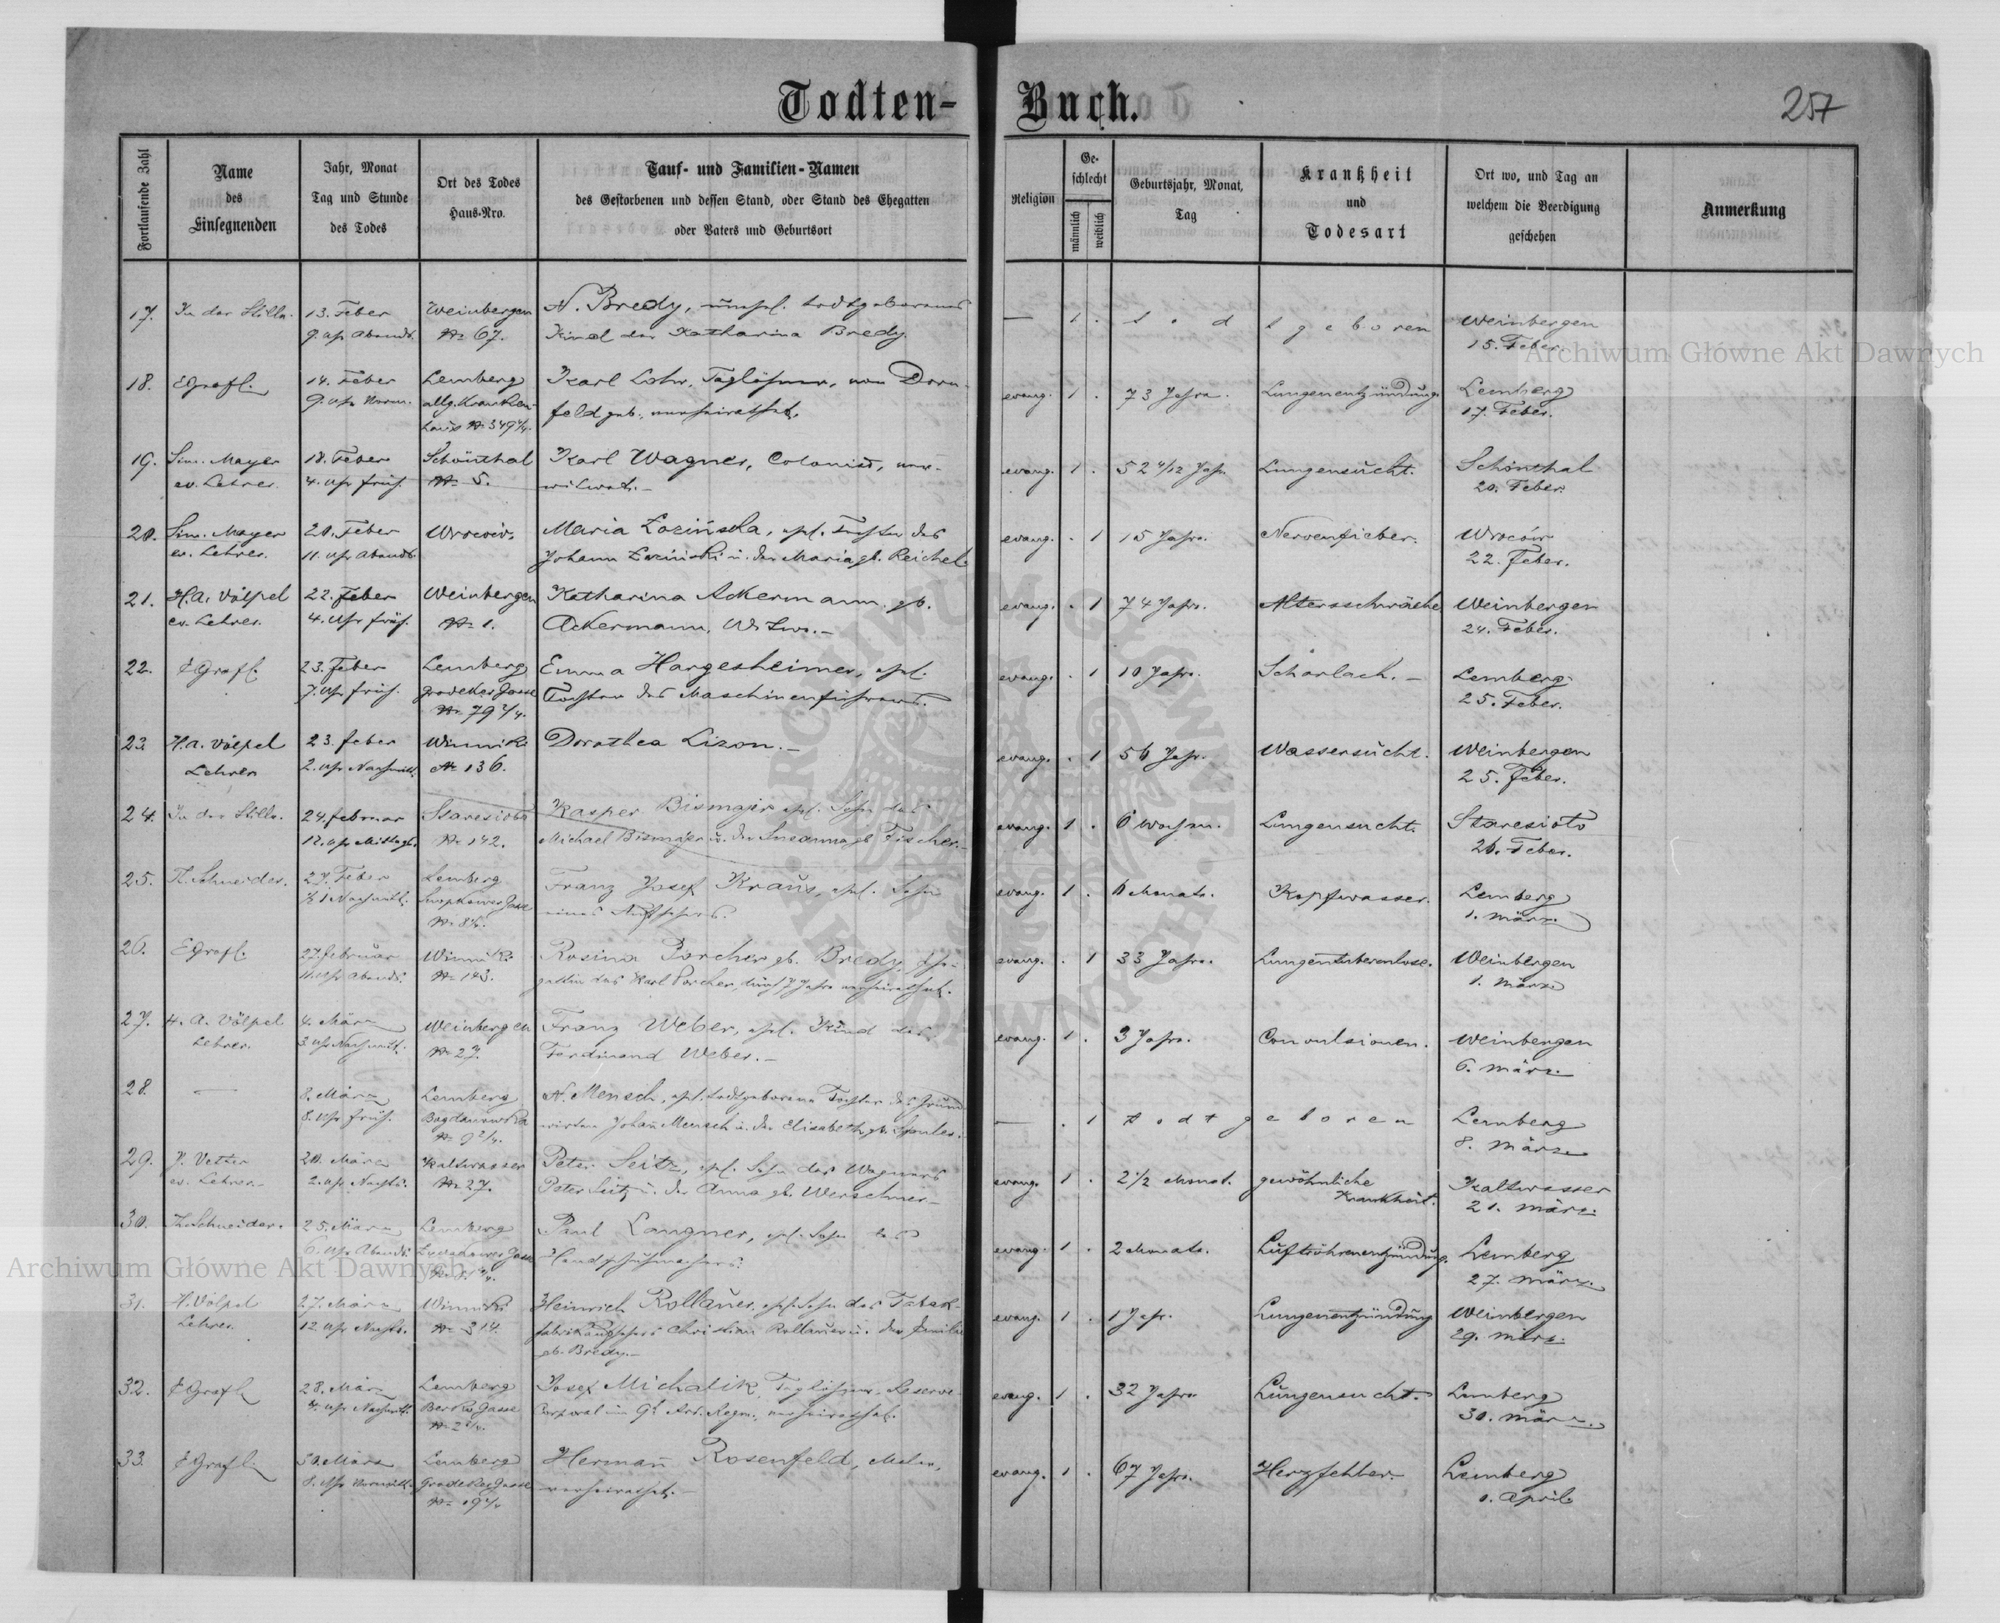 Todten-Buch.
257
Fortlaufende Zahl
Name
des
Einsegnenden
Jahr, Monat
Tag und Stunde
des Todes
Ort des Todes
Haus-Nro.
Tauf- und Familien-Namen
des Gestorbenen und dessen Stand, oder Stand des Ehegatten
oder Vaters und Geburtsort
Religion
Ge-
schlecht
männlich
weiblich
Geburtsjahr, Monat,
Tag
Krankheit
und
Todesart
Ort wo, und Tag an
welchem die Beerdigung
geschehen
Anmerkung
17. In der Stille. 13. Feber Weinbergen N. Bredy, unehel. todtgeborenes — 1 . todtgeboren Weinbergen
9. Uhr Abends. No 67. Kind der Katharina Bredy. 15. Feber.
18. E Grafl. 14. Feber Lemberg Karl Lohr, Taglöhner, von Dorn- evang. 1 . 73 Jahre. Lungenentzündung. Lemberg
9. Uhr Vorm. allg. Kranken- feld geb., verheirathet. 17. Feber.
haus No 349 4/4.
19. Sim. Mayer 18. Feber Schönthal Karl Wagner, Colonist, ver- evang. 1 . 52 4/12 Jahr. Lungensucht. Schönthal
ev. Lehrer. 4. Uhr früh. No 5. witwet. 20. Feber.
20. Sim. Mayer 20. Feber Wrocow. Maria Łozińska, ehel. Tochter des evang. . 1 15 Jahre. Nervenfieber. Wrocow
ev. Lehrer. 11. Uhr Abends Johann Łozinski u. der Maria gb. Reichel. 22. Feber.
21. H. A. Völpel 22. Feber Weinbergen Katharina Ackermann, gb. evang. . 1 74 Jahre. Altersschwäche Weinbergen
ev. Lehrer. 4. Uhr früh. No 1. Ackermann, Witwe. 24. Feber.
22. E Grafl. 23. Feber Lemberg Emma Hargesheimer, ehel. evang. . 1 10 Jahre. Scharlach. Lemberg.
7. Uhr früh. Grodeker Gasse Tochter des Maschinenführers. 25. Feber.
No 79 2/4.
23 H. A. Völpel 23. Feber Winniki Dorothea Lizon. evang. . 1 56 Jahr. Wassersucht. Weinbergen
Lehrer 2. Uhr Nachmitt. No 136. 25. Feber.
24. In der Stille. 24. Februar Staresioło Kasper Bismajer ehel. Sohn des evang. 1 . 6 Wochen. Lungensucht. Staresioło
12. Uhr Mittags. No 142. Michael Bismajer u. der Susanna gb Fischer. 26. Feber.
25. Th. Schneider. 27. Feber Lemberg Franz Josef Kraus, ehel. Sohn evang. 1 . 6 Monate. Kopfwasser. Lemberg
Nachmitt. Gasse eines Aufsehers. 1. März.
26. E Grafl. 27. Februar Winniki Rosina Porcher gb. Bredy, Ehe- evang. . 1 33 Jahre. Lungentuberculose. Weinbergen
11. Uhr Abends. No 143. gattin des Karl Porcher, durch 7 Jahre verheirathet. 1. März
27. H. A. Völpel 4. März Weinbergen Franz Weber, ehel. Kind des evang. 1 . 3 Jahre. Convulsionen. Weinbergen
Lehrer. 3 Uhr Nachmitt. No 27. Ferdinand Weber. 6. März.
28. — 8. März Lemberg N. Mensch, ehel. todtgeborene Tochter des Grund- — . 1 todtgeboren Lemberg
8. Uhr früh. Bogdanowka wirten Johan Mensch u. der Elisabeth gb. 8. März
No 9 2/4.
29. J. Vetter 20. März Kaltwasser Peter Seitz, ehel. Sohn des Wagners evang. 1 . 2 1/2 Monat. gewöhnliche Kaltwasser
ev. Lehrer. 2. Uhr Nachts. No 27. Peter Seitz u. der Anna gb. Werschner Krankheit. 21. März.
30. Th. Schneider. 25. März Lemberg Paul Langner, ehel. Sohn des evang. 1 . 2 Monate. Luftröhrenentzündung. Lemberg
6. Uhr Abends. Gasse Handschuhmachers. 27. März.
31. H. Völpel 27. März Winniki Heinrich Rollauer, ehel. Sohn des Tabak- evang. 1 . 1 Jahr. Lungenentzündung Weinbergen
Lehrer. 12 Uhr Nachts. No 314. fabriksaufsehers Christian Rollauer u. der Emilie 29. März.
gb. Bredy.
32. E Grafl 28. März Lemberg Josef Michalik, Taglöhner, Reserve- evang. 1 . 32 Jahre Lungensucht. Lemberg
4. Uhr Nachmitt. Gasse Corporal im Art. Regm., verheirathet. 30. März.
33. E Grafl 30. März Lemberg Herman Rosenfeld, Maler, evang. 1 . 67 Jahre. Herzfehler. Lemberg
8. Uhr Vormitt. Grodeker Gasse verheirathet. 1. April
Archiwum Główne Akt Dawnych
Archiwum Główne Akt Dawnych